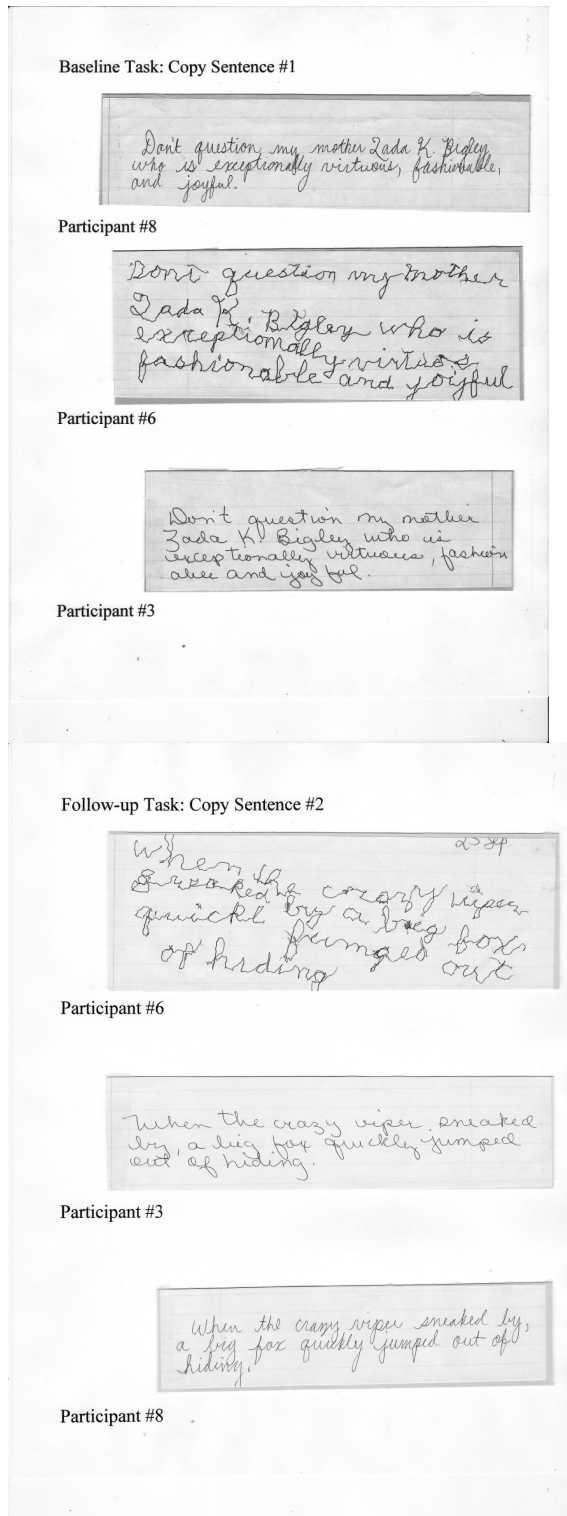 Baseline Task: Copy Sentence #1
Don't question my mother Zada K. Bigley
who is exceptionally virtuous, fashionable,
and joyful.
Participant #8
Dont question my mother
Zada K. Bigley who is
exceptionally virtuos
fashionable and yoiyful
Participant #6
Don't question my mother
Zada K. Bigley who is
exceptionally virtuous, fashion
able and joyful.
Participant #3
Follow-up Task: Copy Sentence #2
When the
sneaked the crazy viper
quickl by a big fox
jumped out
of hiding
Participant #6
When the crazy viper sneaked
by, a big fox quickly jumped
out of hiding.
Participant #3
When the crazy viper sneaked by,
a big fox quickly jumped out of
hiding.
Participant #8